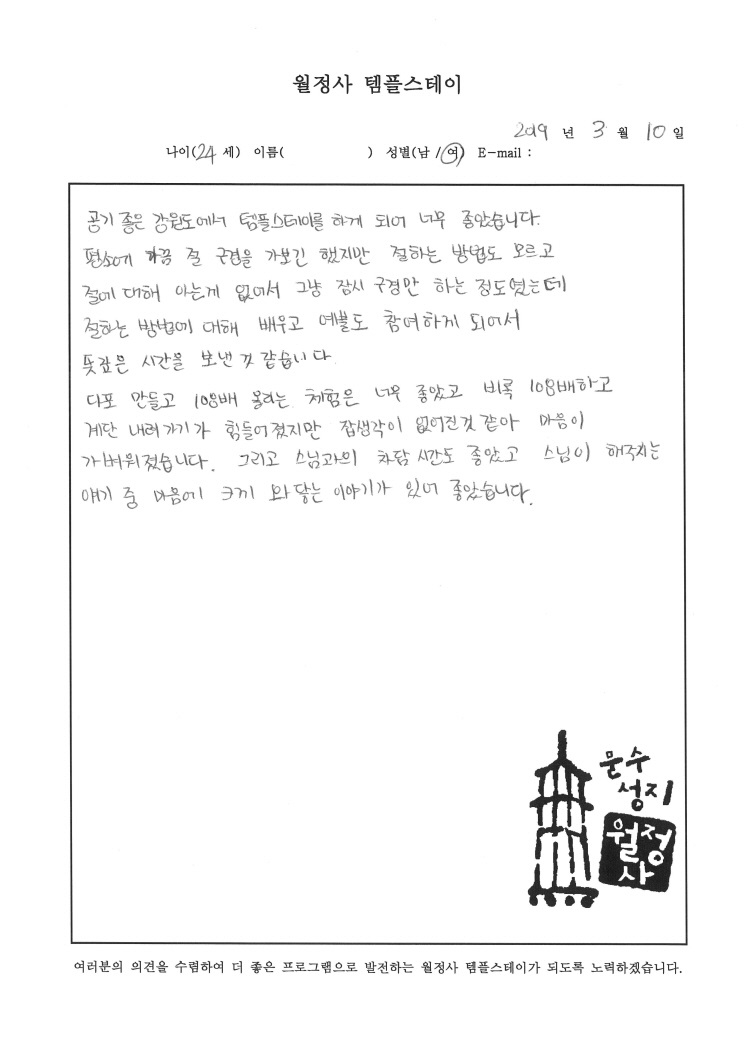 월정사 템플스테이
2019 년 3 월 10 일
나이(24 세) 이름( ) 성별(남 / 여) E-mail :
공기 좋은 강원도에서 템플스테이를 하게 되어 너무 좋았습니다.
평소에 가끔 절 구경을 가보긴 했지만 절하는 방법도 모르고
절에 대해 아는게 없어서 그냥 잠시 구경만 하는 정도였는데
절하는 방법에 대해 배우고 예불도 참여하게 되어서
뜻깊은 시간을 보낸 것 같습니다.
다포 만들고 108배 올리는 체험은 너무 좋았고 비록 108배하고
계단 내려가기가 힘들어졌지만 잡생각이 없어진것 같아 마음이
가벼워졌습니다. 그리고 스님과의 차담 시간도 좋았고 스님이 해주지는
얘기 중 마음에 크게 와 닿는 이야기가 있어 좋았습니다.
문수
성지
월정
사
여러분의 의견을 수렴하여 더 좋은 프로그램으로 발전하는 월정사 템플스테이가 되도록 노력하겠습니다.